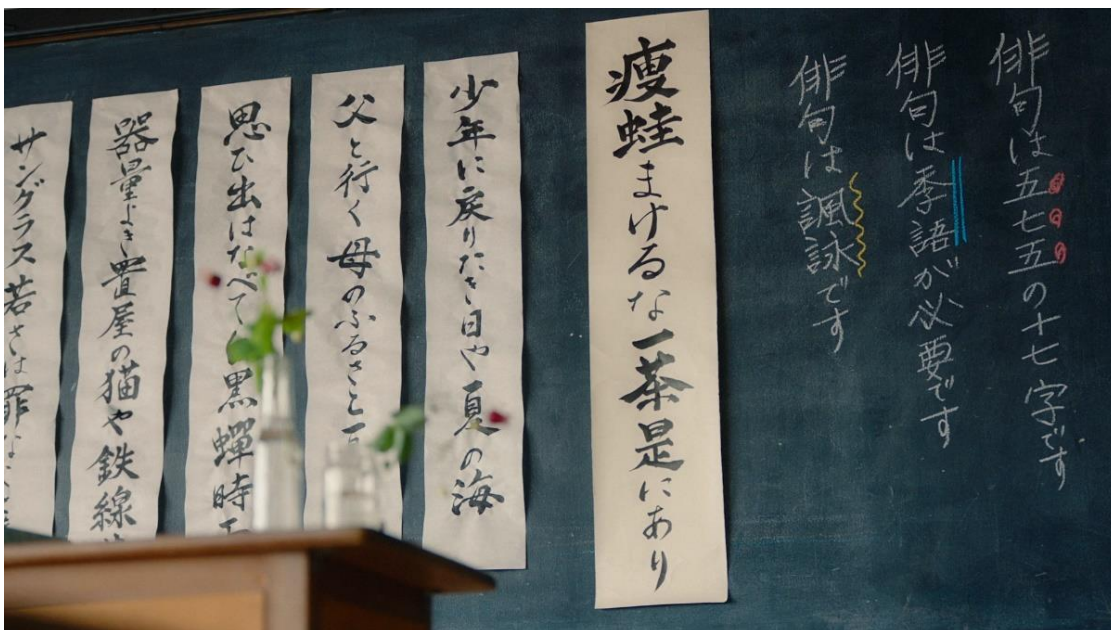 俳句は五七五の十七字です
俳句は季語が必要です
俳句は諷詠です
痩蛙まけるな一茶是にあり
少年に戻りたき日や夏の海
父と行く母のふるさと
思ひ出はなべて 黒蟬時
器量よき置屋の猫や鉄線
サングラス若さは罪